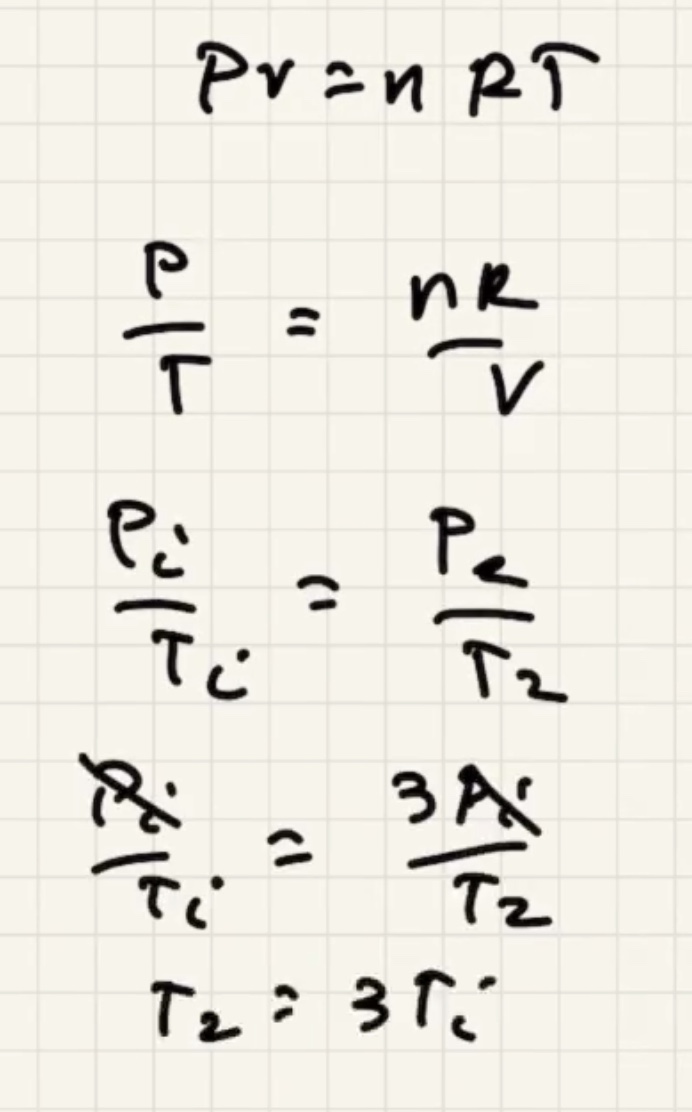 PV = nRT
P/T = nR/V
Pi/Ti = P2/T2
Pi/Ti = 3Pi/T2
T2 = 3Ti